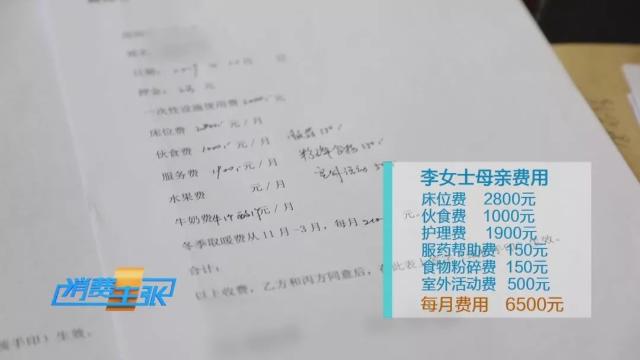 一次性设施使用费
床位费 2800 元/月
伙食费 1000 元/月
服务费 1900 元/月
水果费 元/月
牛奶费 元/月
冬季取暖费从 11 月-3 月，每月
合计：
以上收费，乙方和丙方同意后，在此表
手印）生效。
李女士母亲费用
床位费 2800元
伙食费 1000元
护理费 1900元
服药帮助费 150元
食物粉碎费 150元
室外活动费 500元
每月费用 6500元
消费主张